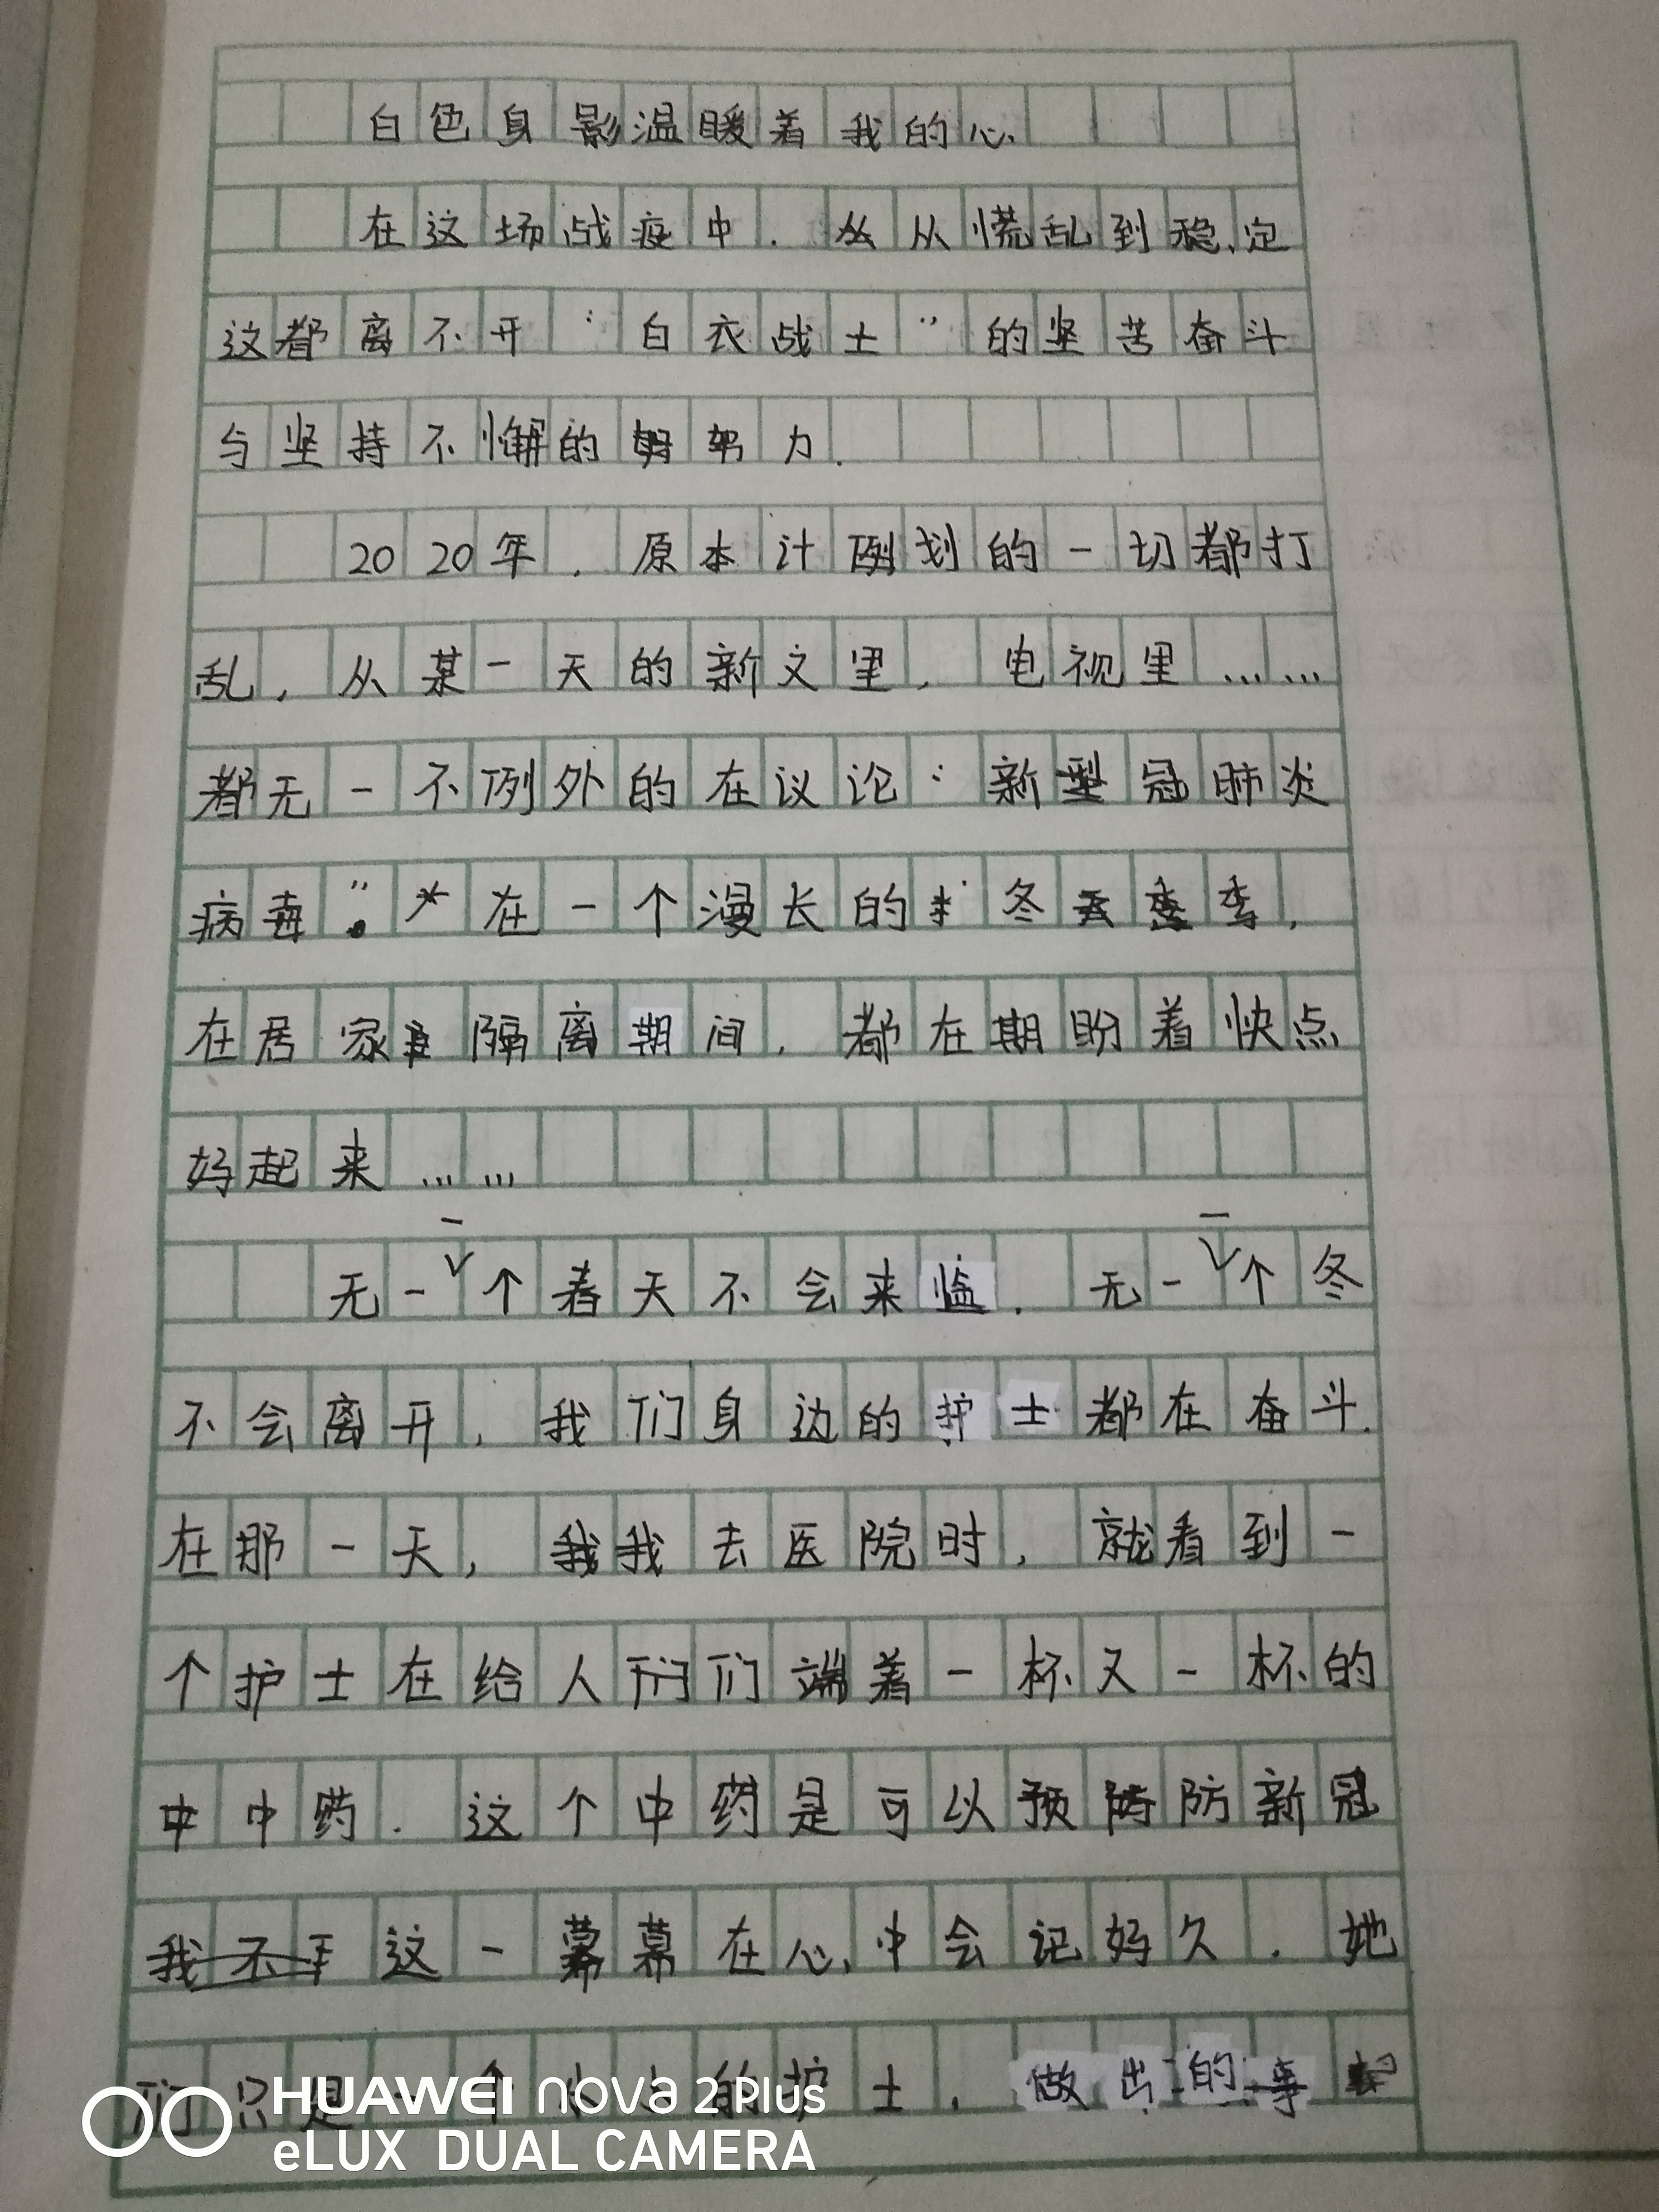 白色身影温暖着我的心
在这场战疫中，从从慌乱到稳定
这都离不开“白衣战士”的坚苦奋斗
与坚持不懈的努力.
2020年，原本计划的一切都打
乱，从某一天的新文里，电视里……
都无一不例外的在议论“新型冠肺炎
病毒”。在一个漫长的冬季，
在居家隔离期间，都在期盼着快点
好起来……
无一一个春天不会来临，无一一个冬
不会离开，我们身边的护士都在奋斗.
在那一天，我我去医院时，就看到一
个护士在给人们们端着一杯又一杯的
中中药.这个中药是可以预防新冠
我不 这一幕幕在心中会记好久.她
们只是一个小小的护士，做出的事
HUAWEI nova 2 Plus
eLUX DUAL CAMERA